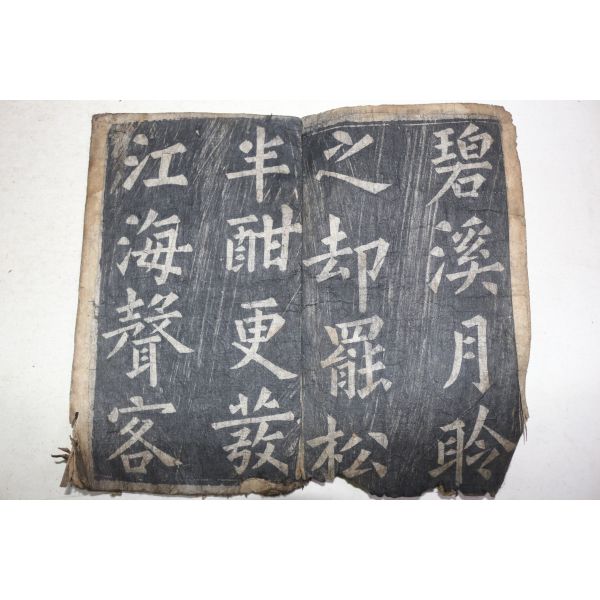 碧溪月聆
之却罷松
半酣更發
江海聲客